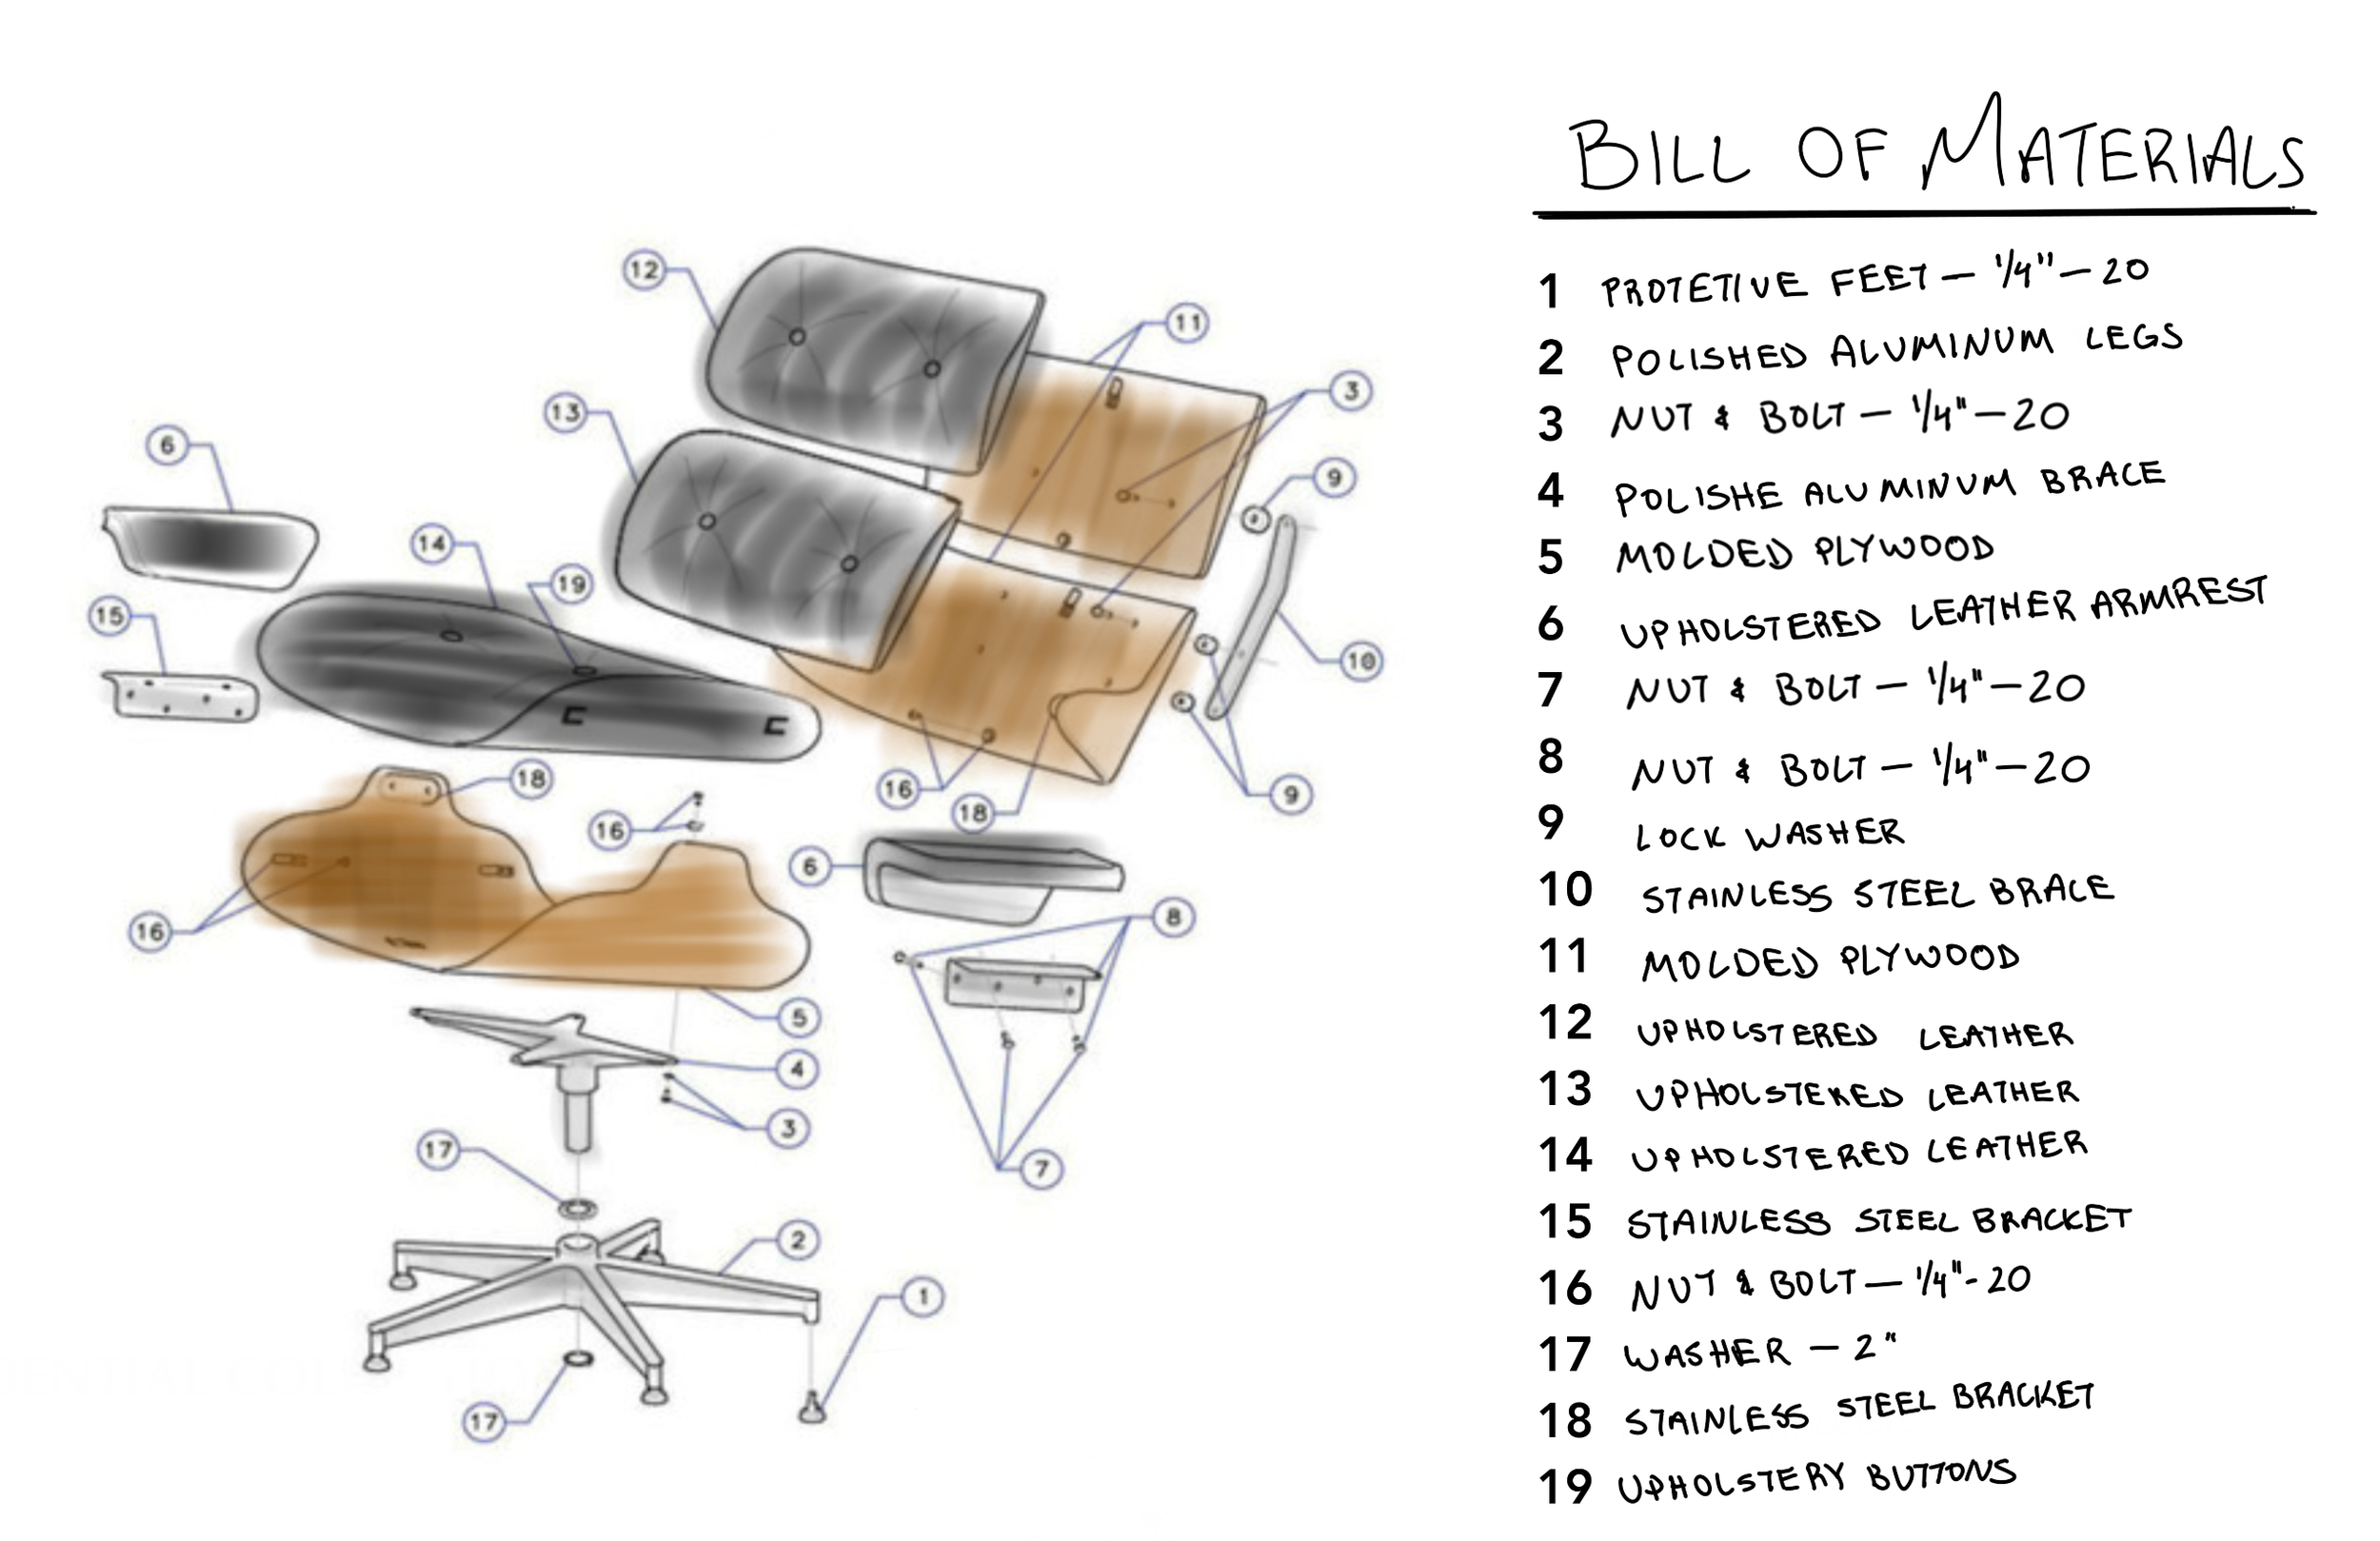 BILL OF MATERIALS
1 PROTETIVE FEET — 1/4" — 20
2 POLISHED ALUMINUM LEGS
3 NUT & BOLT — 1/4" — 20
4 POLISHE ALUMINUM BRACE
5 MOLDED PLYWOOD
6 UPHOLSTERED LEATHER ARMREST
7 NUT & BOLT — 1/4" — 20
8 NUT & BOLT — 1/4" — 20
9 LOCK WASHER
10 STAINLESS STEEL BRACE
11 MOLDED PLYWOOD
12 UPHOLSTERED LEATHER
13 UPHOLSTERED LEATHER
14 UPHOLSTERED LEATHER
15 STAINLESS STEEL BRACKET
16 NUT & BOLT — 1/4" - 20
17 WASHER — 2"
18 STAINLESS STEEL BRACKET
19 UPHOLSTERY BUTTONS
12
11
3
13
6
9
14
19
15
10
18
16
16
18
9
6
16
8
5
4
3
17
7
2
1
17